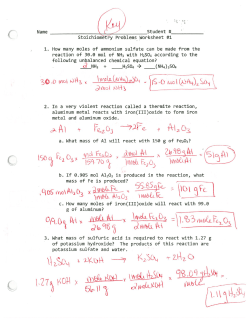 Key
Name Student #
Stoichiometry Problems Worksheet #1
1. How many moles of ammonium sulfate can be made from the
reaction of 30.0 mol of NH₃ with H₂SO₄ according to the
following unbalanced chemical equation?
2 NH₃ + H₂SO₄ → (NH₄)₂SO₄
30.0 mol NH₃ × 1 mole (NH₄)₂SO₄ / 2 mol NH₃ = 15.0 mol (NH₄)₂SO₄
2. In a very violent reaction called a thermite reaction,
aluminum metal reacts with iron(III)oxide to form iron
metal and aluminum oxide.
2Al + Fe₂O₃ → 2Fe + Al₂O₃
a. What mass of Al will react with 150 g of Fe₂O₃?
150 g Fe₂O₃ × 1 mol Fe₂O₃ / 159.70 g × 2 mol Al / 1 mol Fe₂O₃ × 26.98 g Al / 1 mol Al = 51 g Al
b. If 0.905 mol Al₂O₃ is produced in the reaction, what
mass of Fe is produced?
.905 mol Al₂O₃ × 2 mole Fe / 1 mol Al₂O₃ × 55.85 g Fe / 1 mole Fe = 101 g Fe
c. How many moles of iron(III)oxide will react with 99.0
g of aluminum?
99.0 g Al × 1 mole Al / 26.98 g × 1 mole Fe₂O₃ / 2 mole Al = 1.83 mole Fe₂O₃
3. What mass of sulfuric acid is required to react with 1.27 g
of potassium hydroxide? The products of this reaction are
potassium sulfate and water.
H₂SO₄ + 2KOH → K₂SO₄ + 2H₂O
1.27 g KOH × 1 mole KOH / 56.11 g × 1 mole H₂SO₄ / 2 mole KOH × 98.09 g H₂SO₄ / mole =
1.11 g H₂SO₄